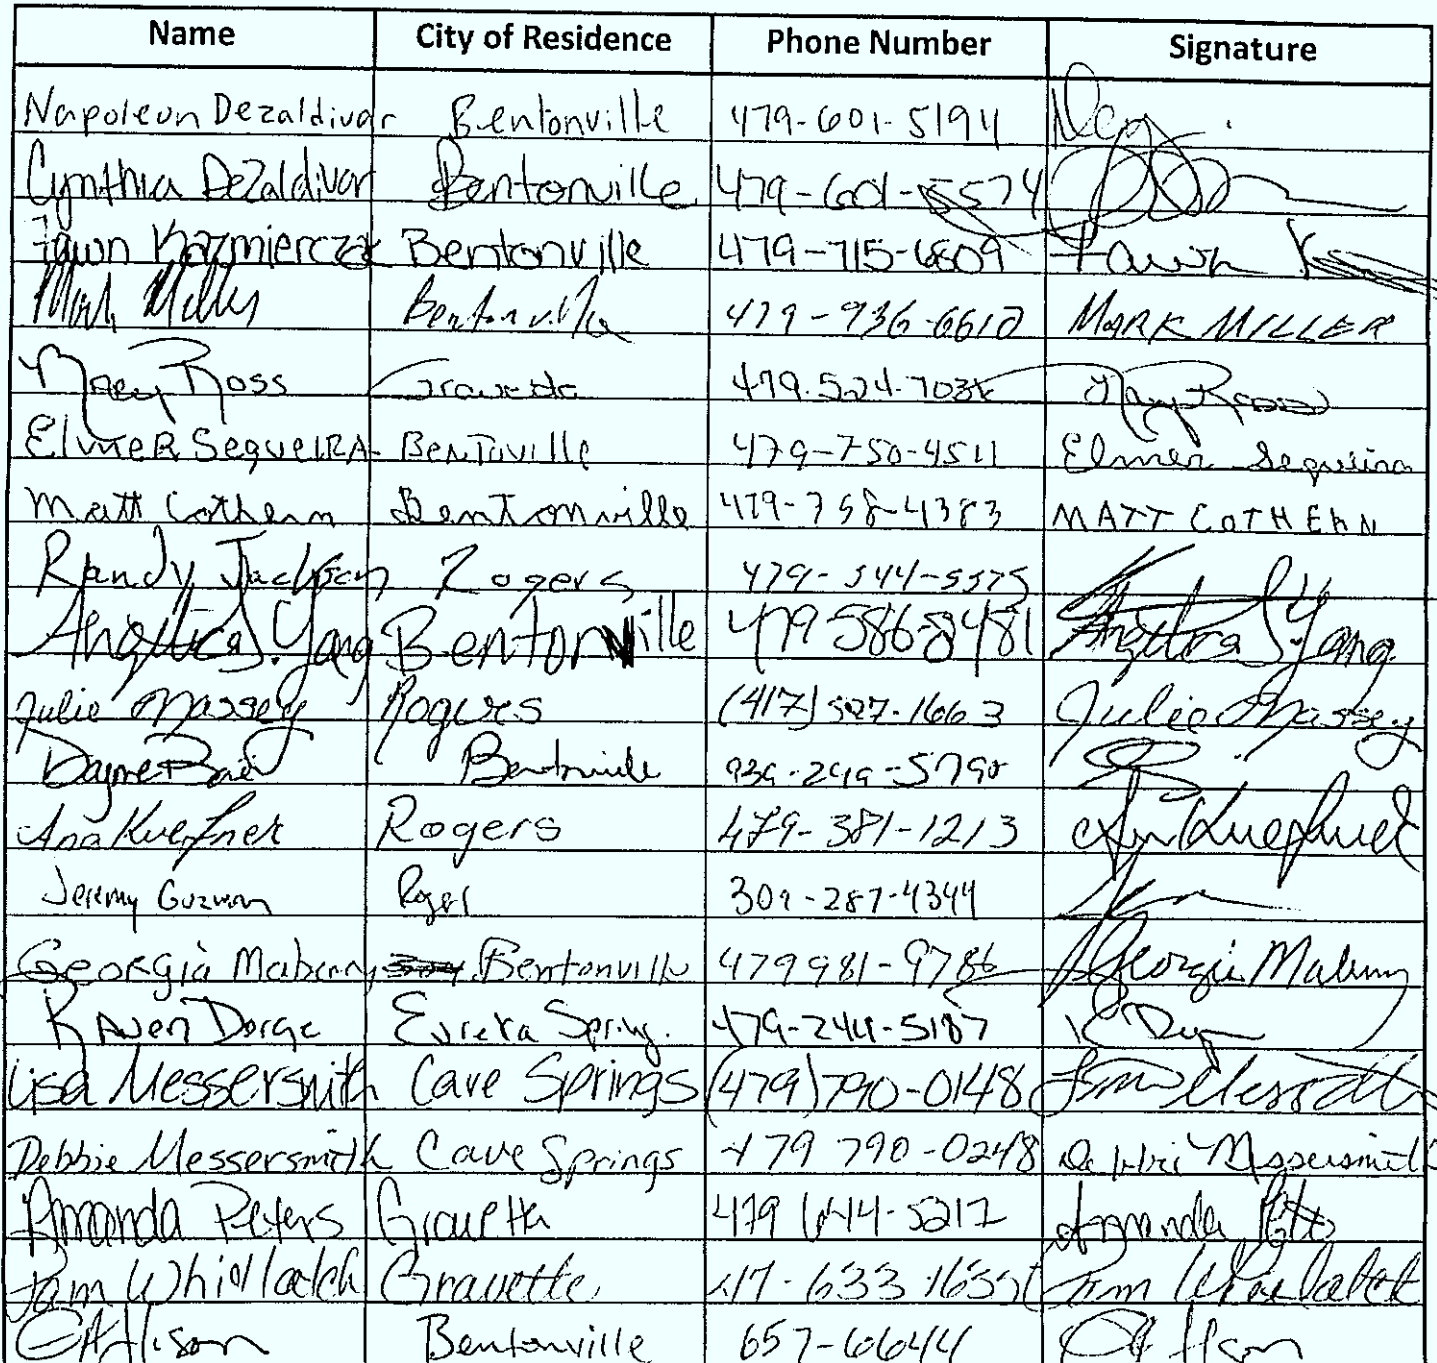 Name City of Residence Phone Number Signature
Napoleon Dezaldivar Bentonville 479-601-5194
Cynthia DeZaldivar Bentonville 479-601-5574
Fawn Kazmierczak Bentonville 479-715-6809 Fawn
Mark Miller Bentonville 479-936-6612 MARK MILLER
Ross Gravette 479.524-703 Ross
ElmeR SequeIRA BenTonville 479-750-4511 Elmer Sequeira
Matt Cothern Bentonville 479-758-4383 MATT COTHERN
Randy Jackson Rogers 479-544-5575
Angelica S. Yang Bentonville 479-586-8481 Angelica S. Yang
Julie Massey Rogers (417) 527-1663 Julie Massey
Bentonville 939-249-5790
Ana Kuefner Rogers 479-381-1213 Kuefner
Jeremy Guzman Roger 309-287-4344
Georgia Mabury Bentonville 479 981-9786 Georgia Mabury
Raven Dorge Eureka Spring. 479-244-5187
Lisa Messersmith Cave Springs (479)790-0148
Debbie Messersmith Cave Springs 479 790-0248 Debbie Messersmith
Amanda Peters Gravette 479 644-5217 Amanda
Pam Whitlatch Gravette 417-633-1635 Pam Whitlatch
Bentonville 657-6644